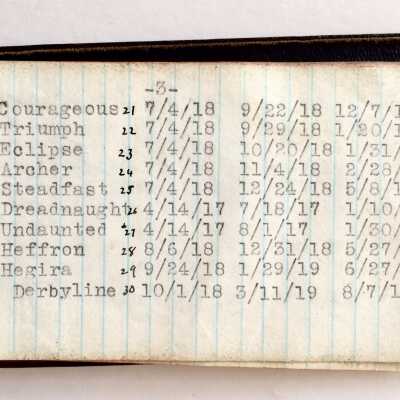 -3-
Courageous 21 7/4/18 9/22/18 12/7/1
Triumph 22 7/4/18 9/29/18 1/20/1
Eclipse 23 7/4/18 10/20/18 1/31/
Archer 24 7/4/18 11/4/18 2/28/
Steadfast 25 7/4/18 12/24/18 5/8/1
Dreadnaught 26 4/14/17 7/18/17 1/10/
Undaunted 27 4/14/17 8/1/17 1/30/
Heffron 28 8/6/18 12/31/18 5/27/
Hegira 29 9/24/18 1/29/19 6/27/
Derbyline 30 10/1/18 3/11/19 8/7/1